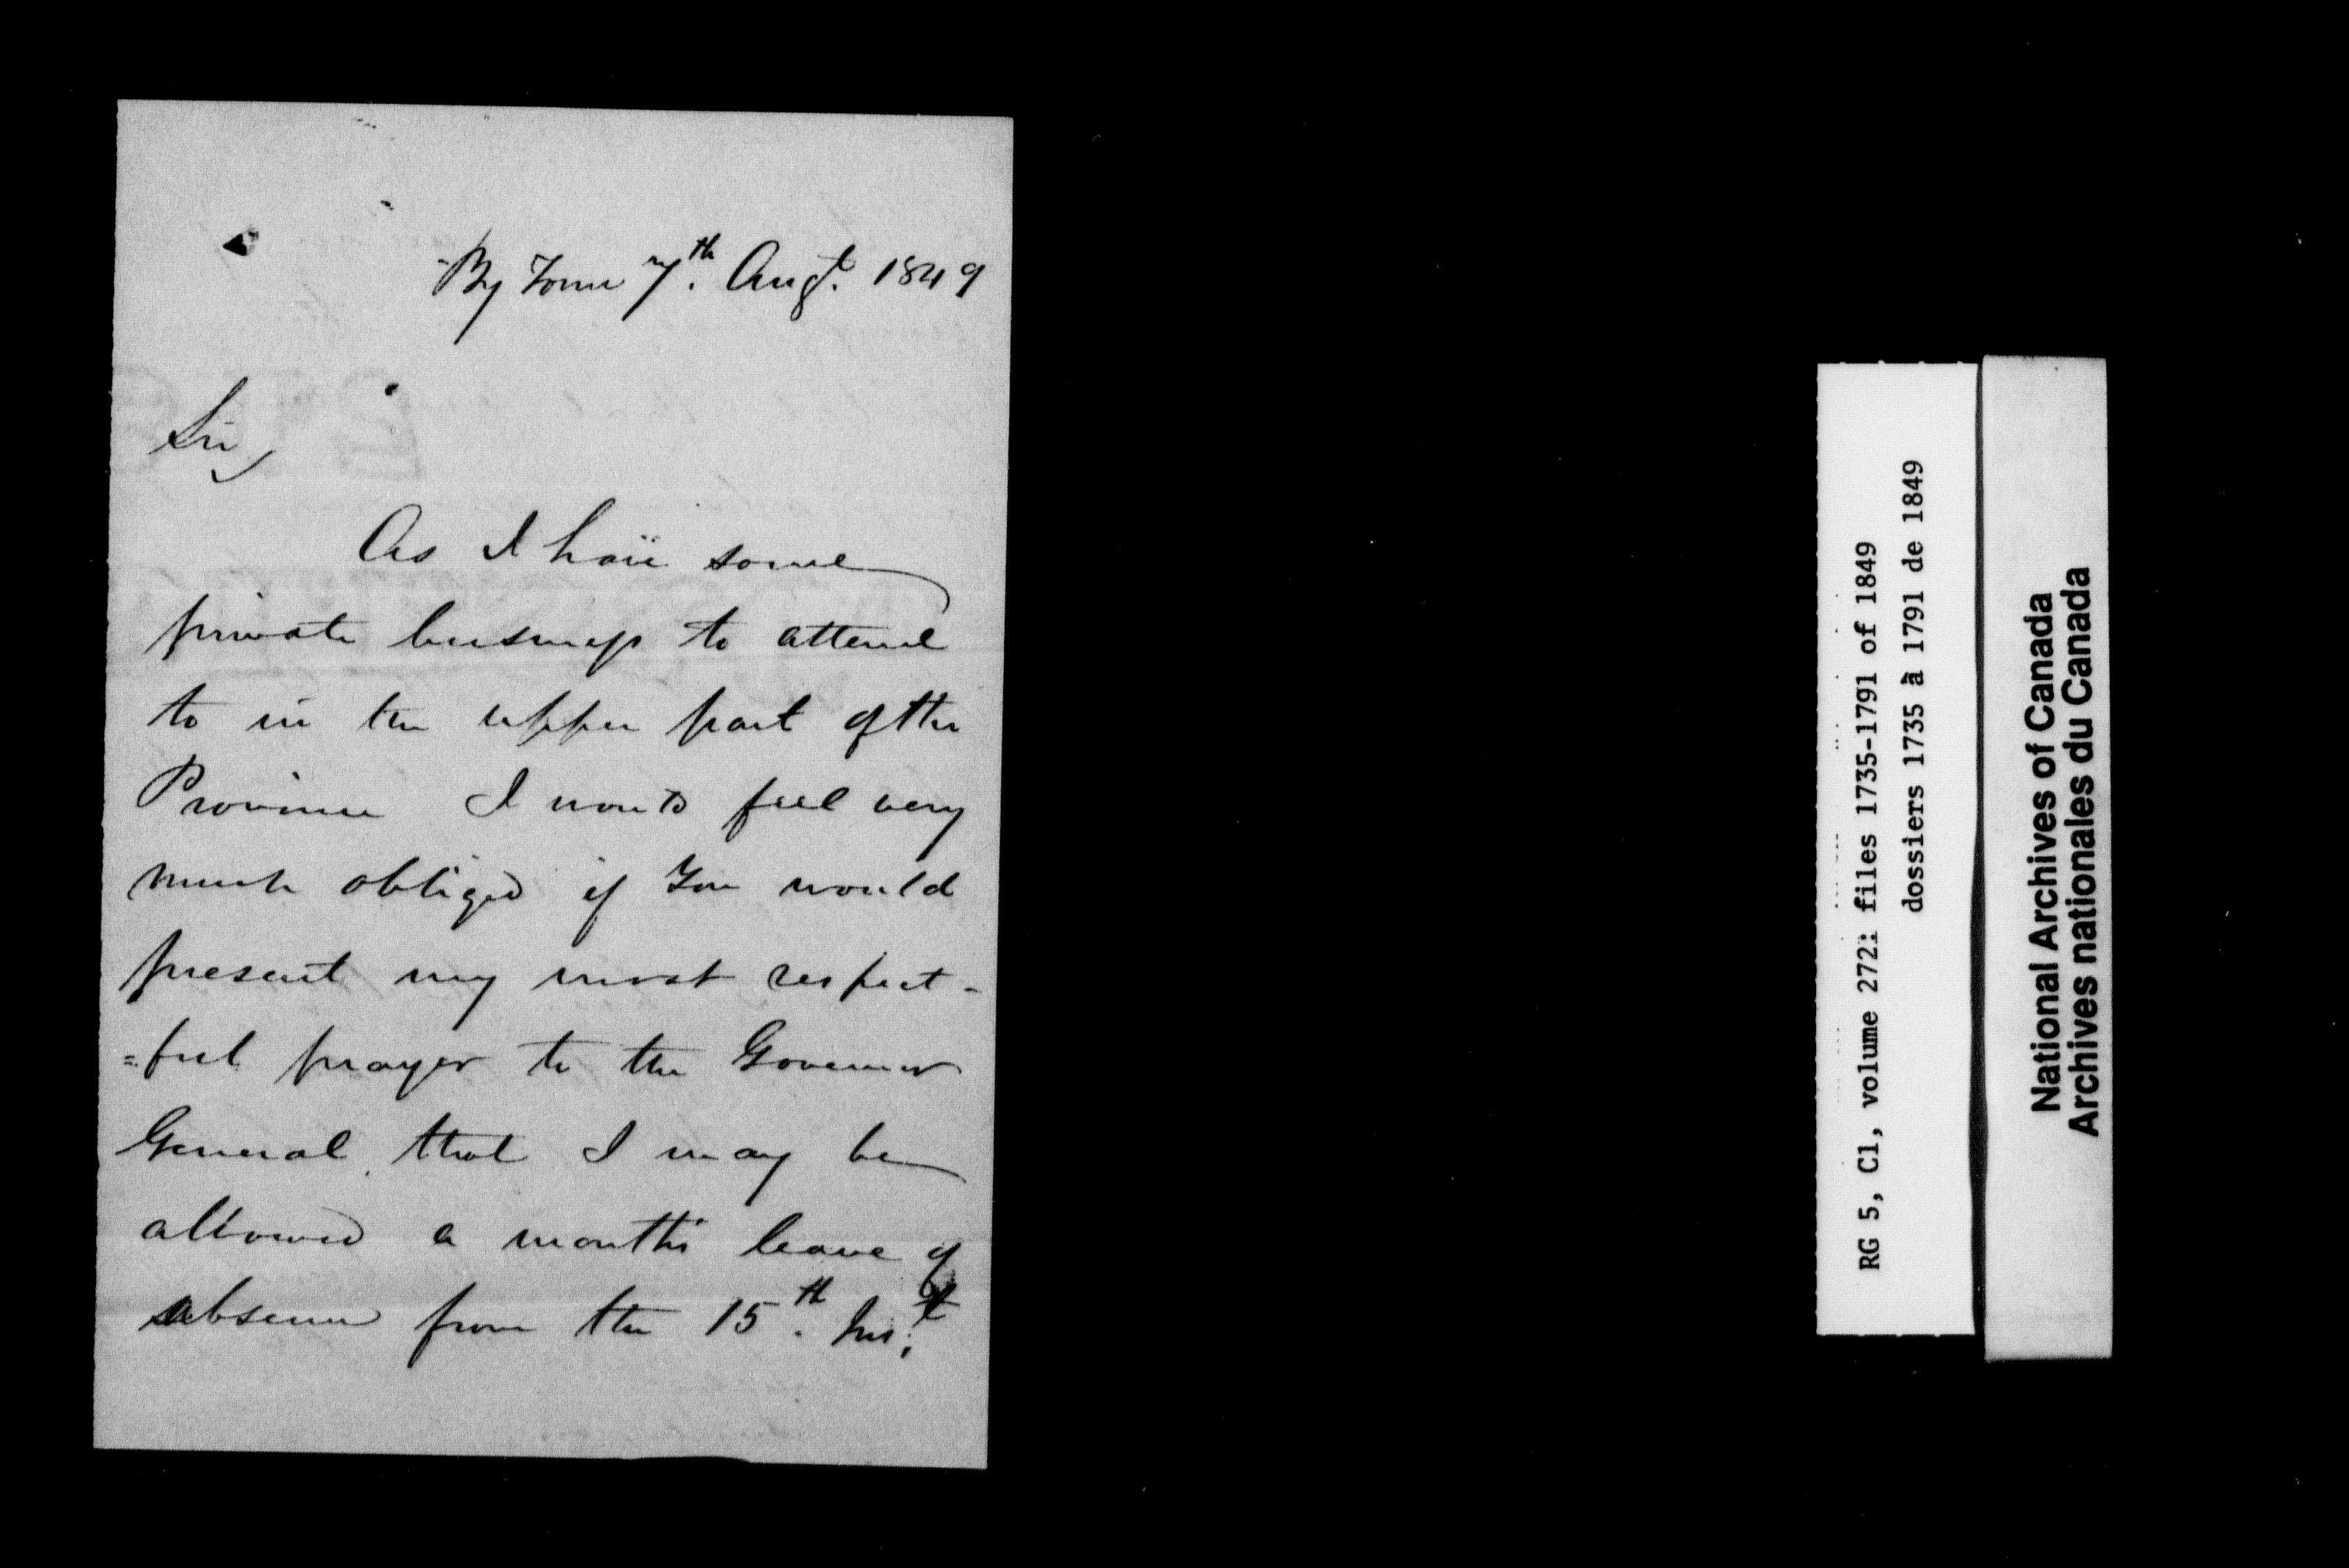 By Town 7th. Augt. 1849
Sir,
As I have some
private business to attend
to in the upper part of the
Province I would feel very
much obliged if You would
present my most respect-
=ful prayer to the Governor
General that I may be
allowed a month's leave of
absence from the 15th. Inst.
RG 5, C1, volume 272: files 1735-1791 of 1849
dossiers 1735 à 1791 de 1849
National Archives of Canada
Archives nationales du Canada